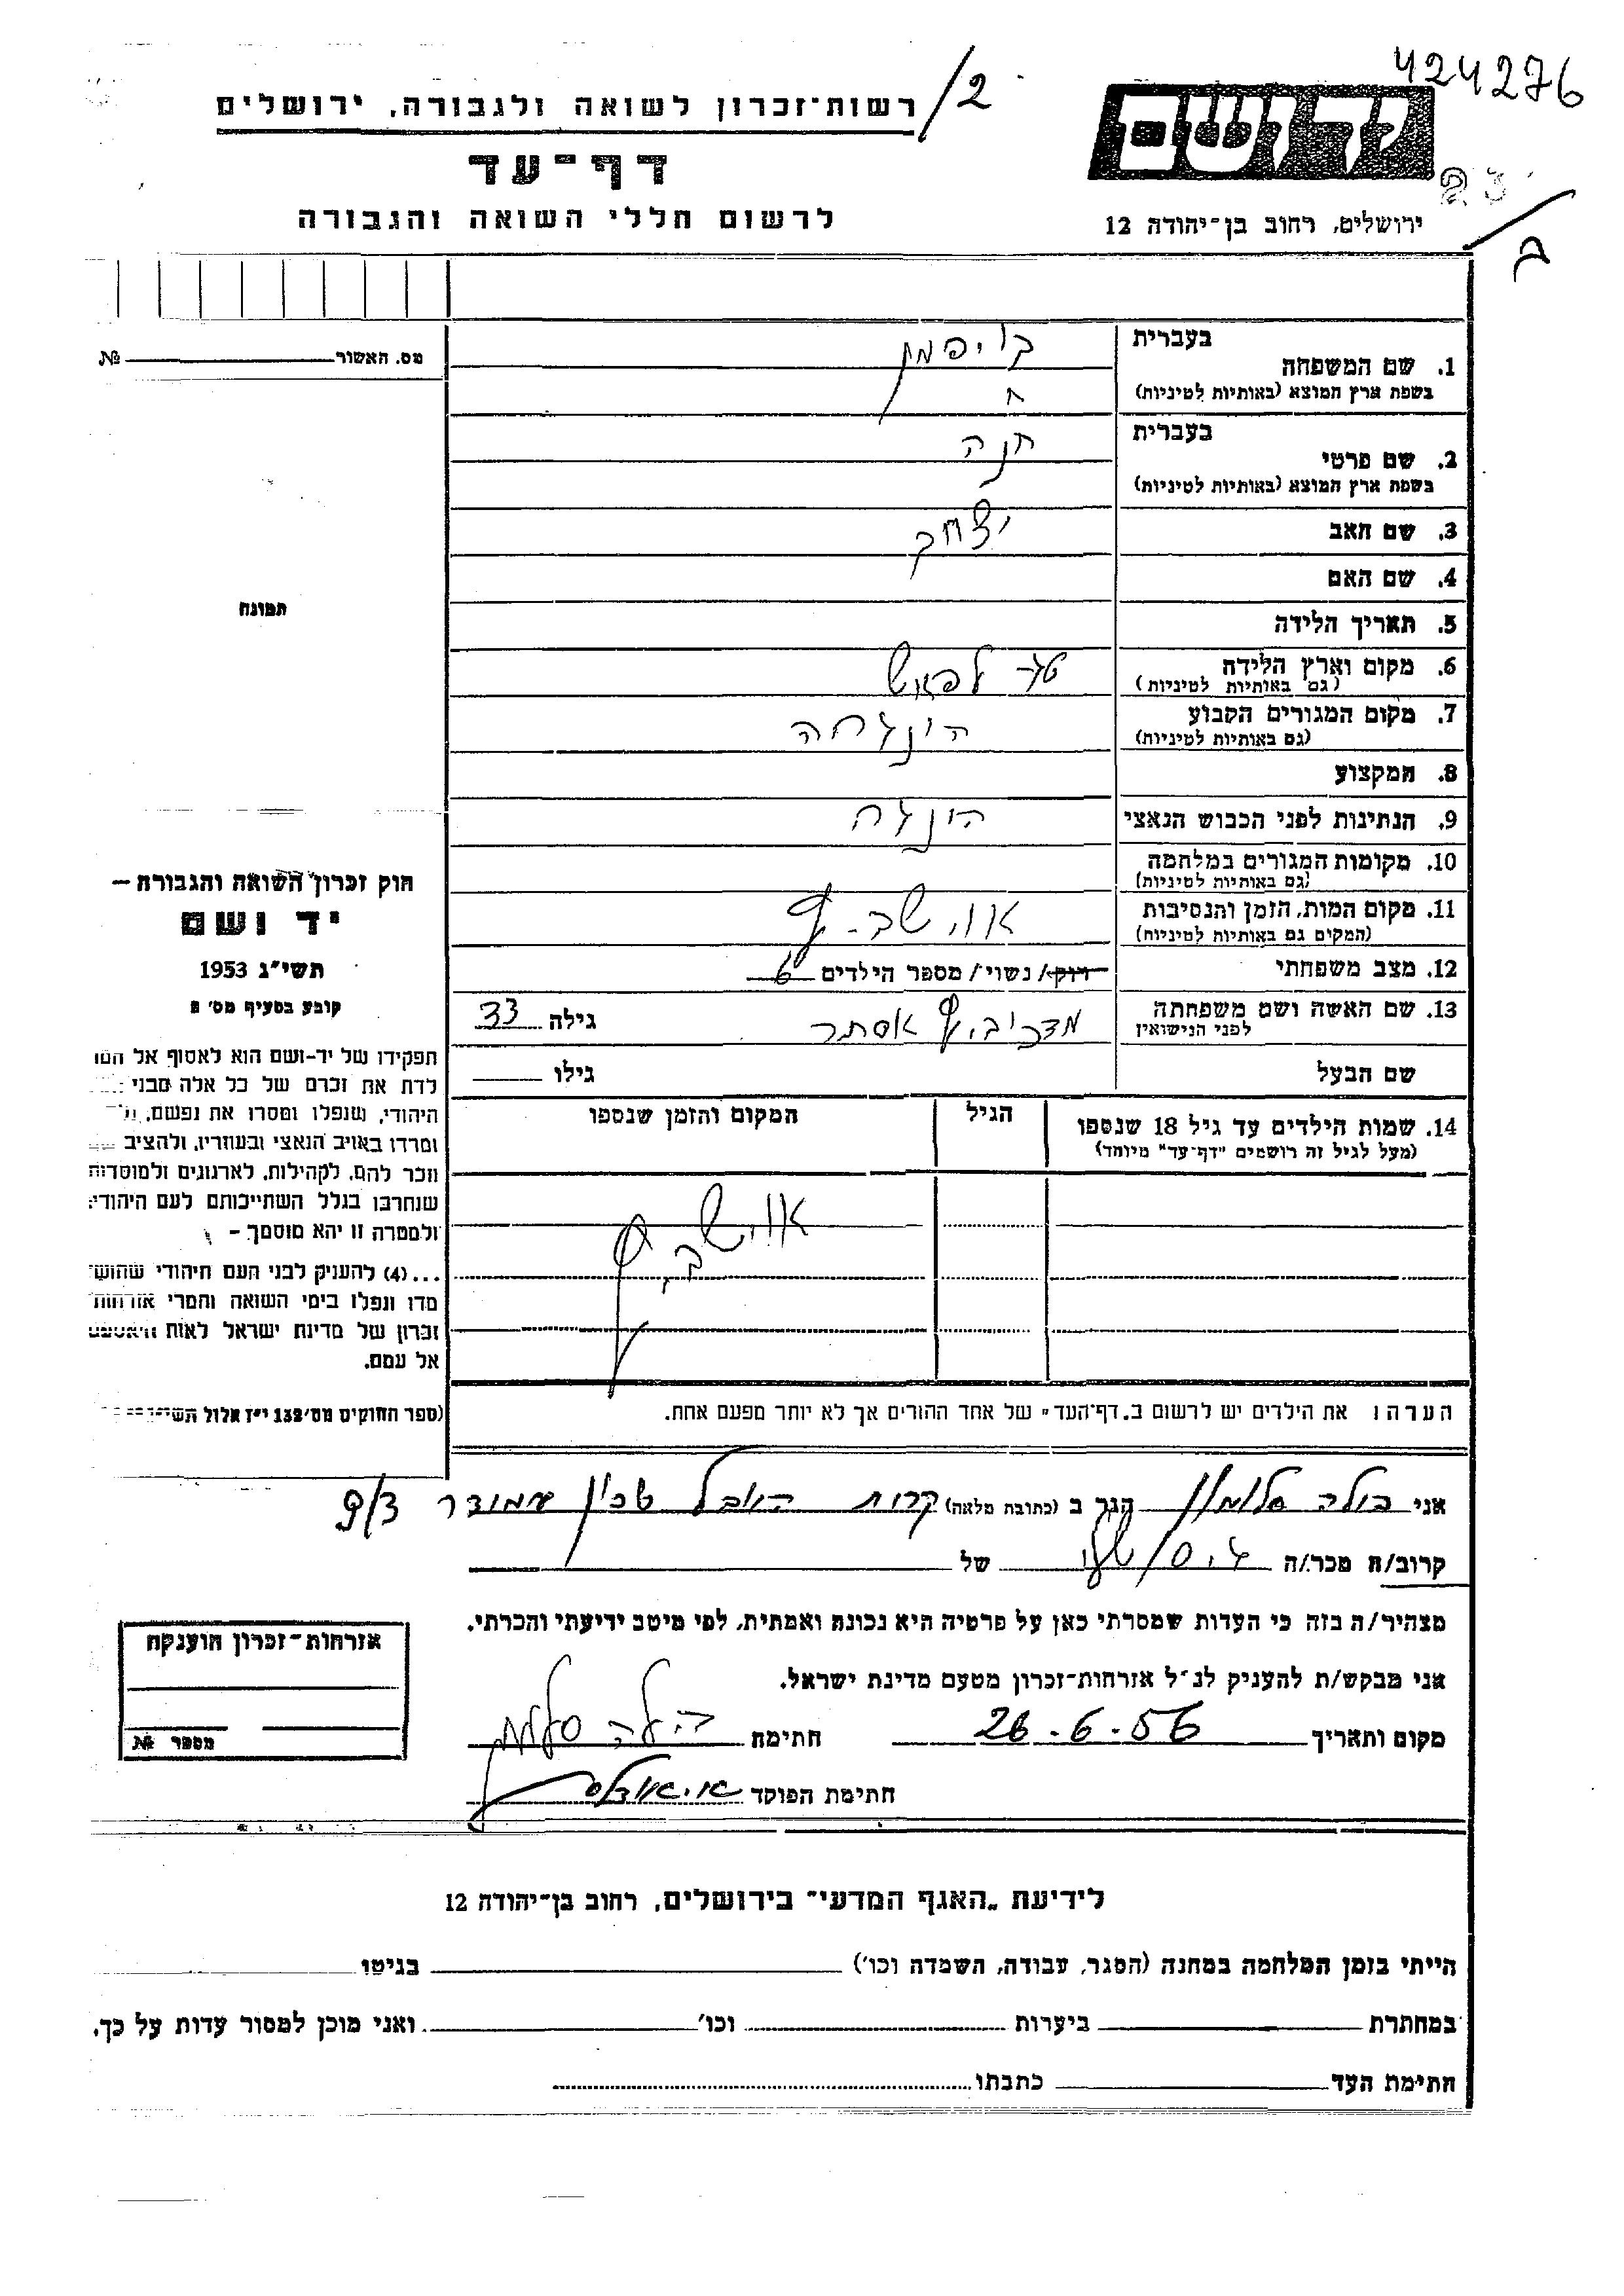 424276
רשות־זכרון לשואה ולגבורה, ירושלים
2/
דף־עד
לרשום חללי השואה והגבורה
יד ושם
ירושלים, רחוב בן־יהודה 12
מס. האשור № 
בעברית
1. שם המשפחה קויפמן
בשפת ארץ המוצא (באותיות לטיניות)
בעברית
2. שם פרטי חנה
בשפת ארץ המוצא (באותיות לטיניות)
3. שם האב יצחק
4. שם האם
5. תאריך הלידה
6. מקום וארץ הלידה
(גם באותיות לטיניות)
7. מקום המגורים הקבוע הונגריה
(גם באותיות לטיניות)
8. המקצוע
9. הנתינות לפני הכבוש הנאצי
10. מקומות המגורים במלחמה
(גם באותיות לטיניות)
11. מקום המות, הזמן והנסיבות אושביץ
(המקום גם באותיות לטיניות)
12. מצב משפחתי רווק/ נשוי/ מספר הילדים 6
13. שם האשה ושם משפחתה אסתר גילה 33
לפני הנישואין
שם הבעל גילו
14. שמות הילדים עד גיל 18 שנספו הגיל המקום והזמן שנספו
(מעל לגיל זה רושמים "דף־עד" מיוחד)
אושביץ
הערה: את הילדים יש לרשום ב„דף־העד" של אחד ההורים אך לא יותר מפעם אחת.
תמונה
חוק זכרון השואה והגבורה —
יד ושם
תשי"ג 1953
קובע בסעיף מס' 2
תפקידו של יד-ושם הוא לאסוף אל
לדת את זכרם של כל אלה מבני
היהודי, שנפלו ומסרו את נפשם,
ומרדו באויב הנאצי ובעוזריו, ולהציב
וזכר להם, לקהילות, לארגונים ולמוסדות
שנחרבו בגלל השתייכותם לעם היהודי
ולמטרה זו יהא מוסמך –
...(4) להעניק לבני העם היהודי שהוש
מדו ונפלו בימי השואה והמרי אזרחות
זכרון של מדינת ישראל לאות
אל עמם.
(ספר החוקים מס' 132 י"ז אלול
אני סלומון הגר ב (כתובת מלאה) שכון עמידר
קרוב/ה מכר/ה גיס של
מצהיר/ה בזה כי העדות שמסרתי כאן על פרטיה היא נכונה ואמתית, לפי מיטב ידיעתי והכרתי.
אני מבקש/ת להעניק לנ"ל אזרחות-זכרון מטעם מדינת ישראל.
מקום ותאריך 26.6.56 חתימה
חתימת הפוקד
אזרחות־זכרון הוענקה
מספר №
לידיעת „האגף המדעי" בירושלים, רחוב בן־יהודה 12
הייתי בזמן המלחמה במחנה (הסגר, עבודה, השמדה וכו') בגיטו
במחתרת ביערות וכו' ואני מוכן למסור עדות על כך.
חתימת העד כתבתו